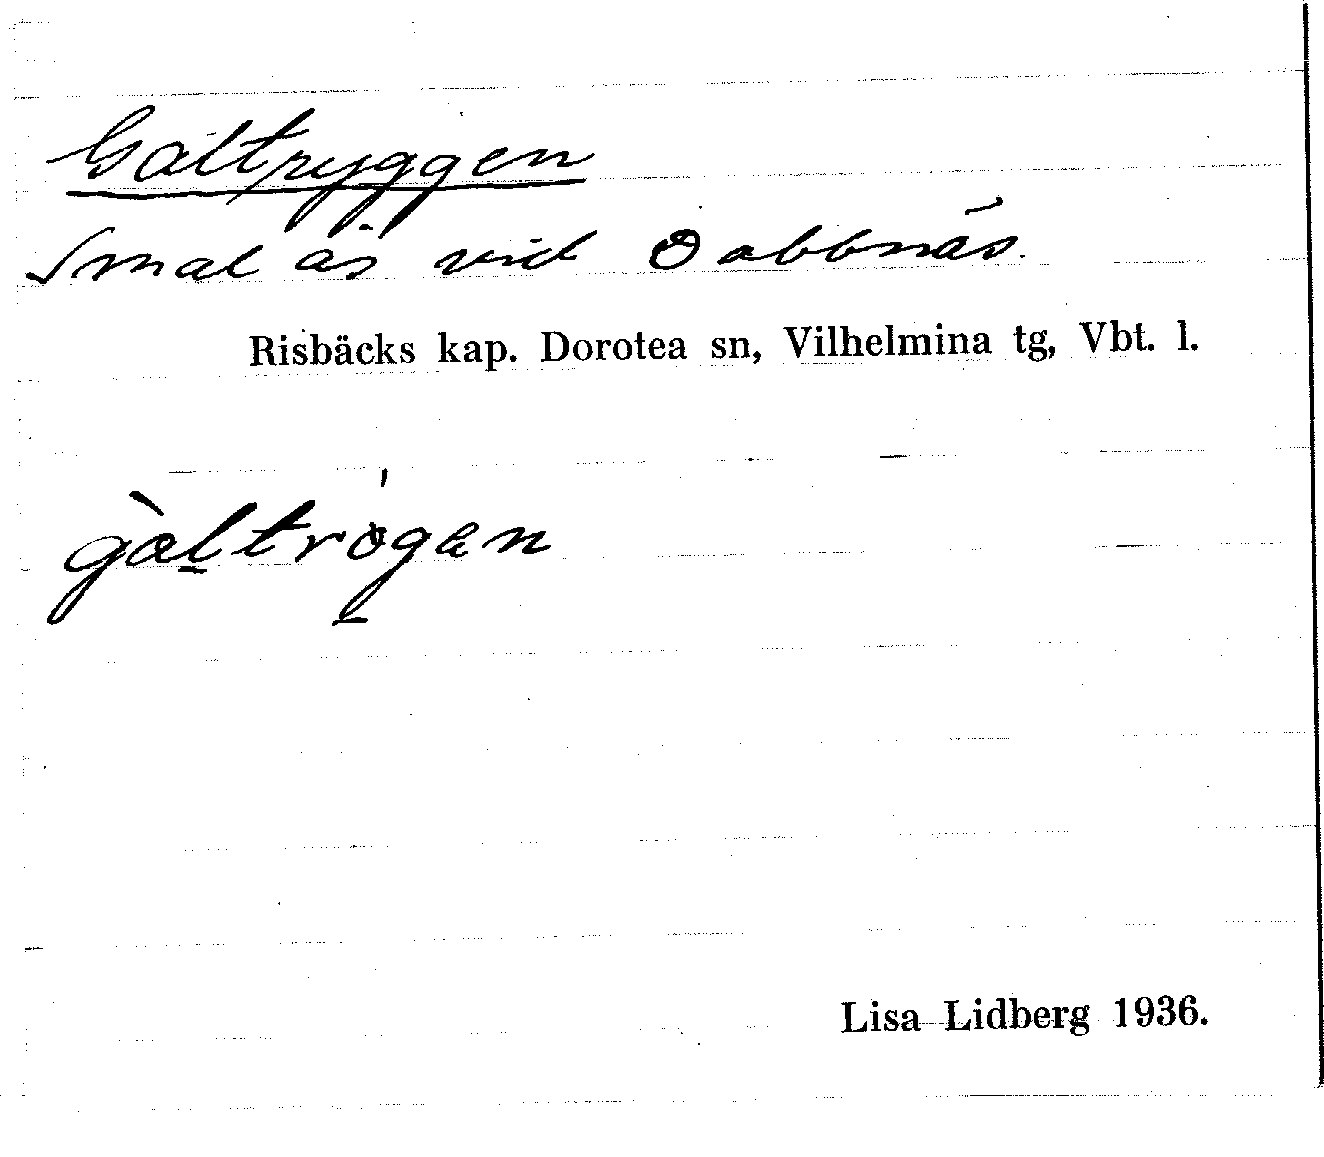 Galtryggen
Smal ås vid Dabbnäs.
Risbäcks kap. Dorotea sn, Vilhelmina tg, Vbt. l.
gàltrògan
Lisa Lidberg 1936.